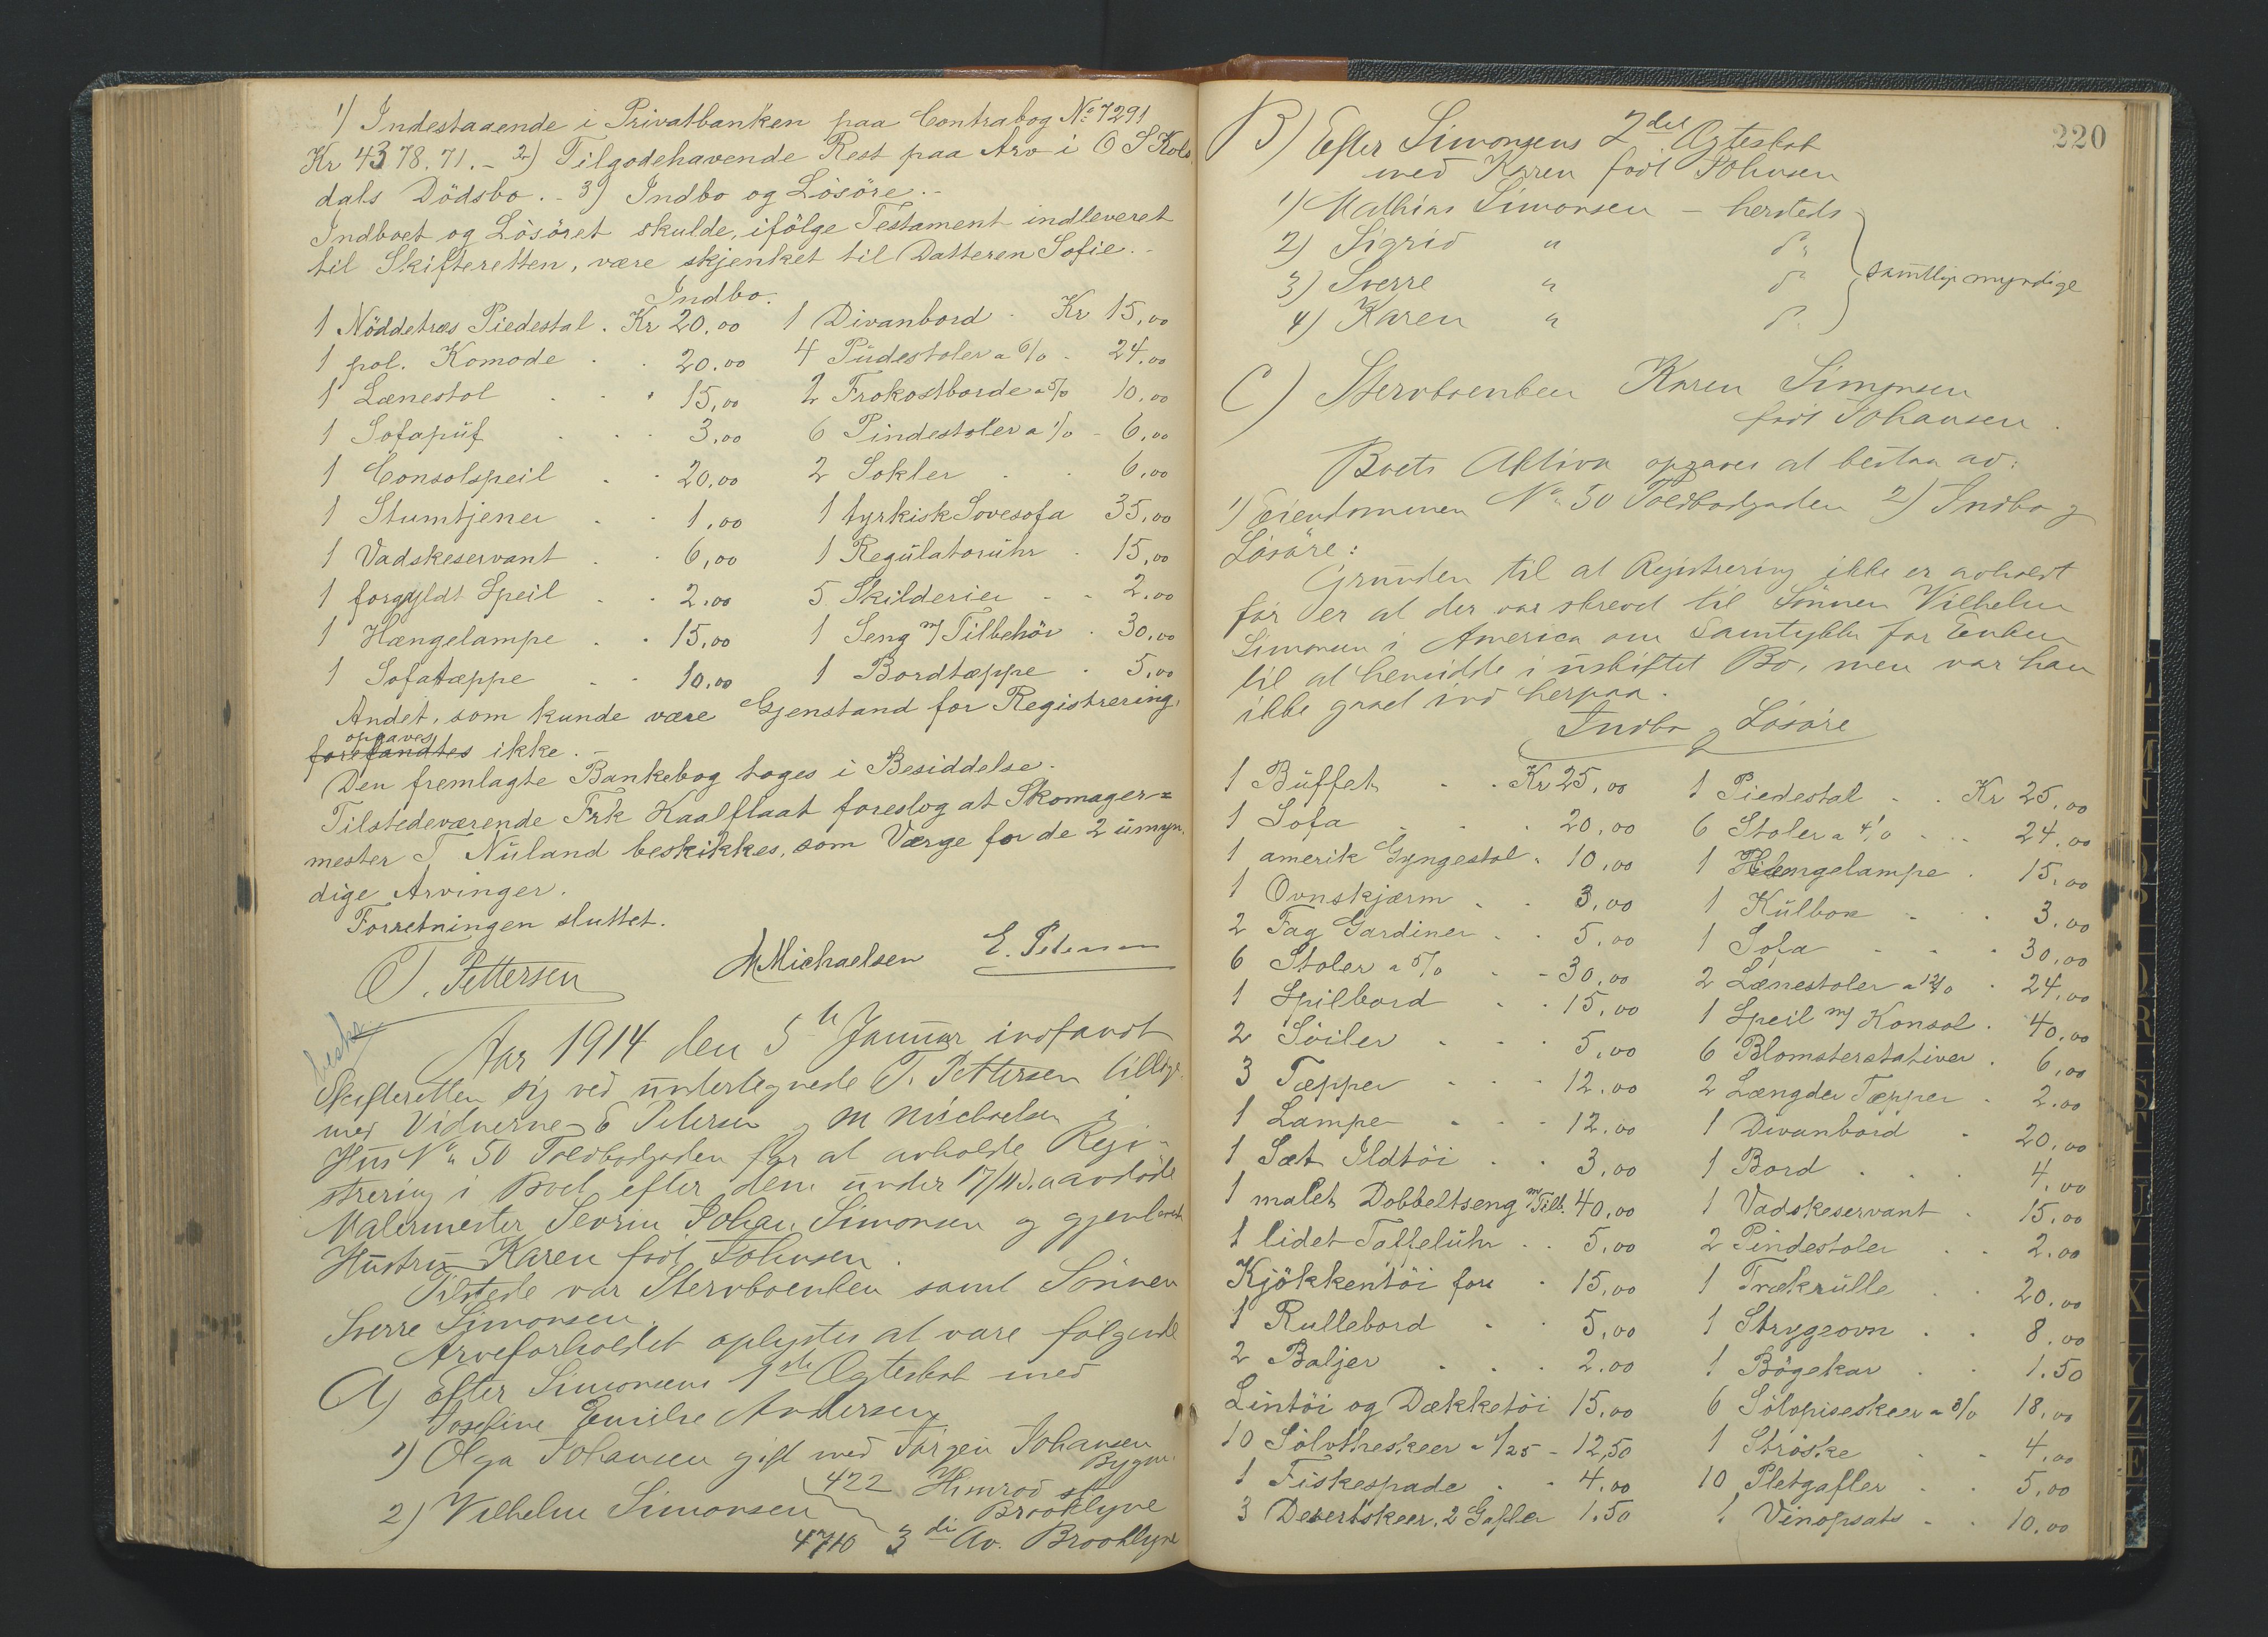 1) Indestaaende i Privatbanken paa Contrabog No 7291
Kr 4378.71.- 2) Tilgodehavende Rest paa Arv i O S Kols
dals Dödsbo.- 3) Indbo og Lösöre.-
Indboet og Lösöret skulde, ifölge Testament indleveret
til Skifteretten, være skjenket til Datteren Sofie.-
Indbo.
1 Nöddetræs Piedestal . Kr 20,00 1 Divanbord . Kr 15,00
1 pol. Komode . . 20.00 4 Pudestoler a 6/0 . 24.00
1 Lænestol . . . 15,00 2 Frokostborde a 5/0 10,00
1 Sofapuf . . . 3,00 6 Pindestoler a 1/0 - 6,00
1 Consolspeil . . 20,00 2 Sokler . . 6,00
1 Stumtjener . . 1,00 1 tyrkisk Sovesofa 35,00
1 Vadskeservant . . 6,00 1 Regulatoruhr . 15,00
1 forgyldt Speil . . 2.00 5 Skilderier . . 2.00
1 Hængelampe . . 15,00 1 Seng m/ Tilbehör . 30,00
1 Sofatæppe . . 10.00 1 Bordtæppe . 5,00
Andet, som kunde være Gjenstand for Registrering,
opgaves
forefandtes ikke.-
Den fremlagte Bankebog toges i Besiddelse.
Tilstedeværende Frk Kaalflaat foreslog at Skomager=
mester T Nuland beskikkes, som Værge for de 2 umyn.
dige Arvinger.
Forretningen sluttet.
T. Pettersen M Michaelsen E. Petersen
Aar 1914 den 5te Januar indfandt
Skifteretten sig ved undertegnede T. Pettersen tillige
med Vidnerne E Petersen og M Michaelsen i
Hus No 50 Toldbodgaden for at avholde Regi-
strering i Boet efter den under 17/11 d.a avdöde
Malermester Severin Johan Simonsen og gjenlevende
Hustru Karen född Johnsen.
Tilstede var Stervboenken samt Sönnen
Sverre Simonsen.
Arveforholdet oplystes at være følgende
A) Efter Simonsens 1ste Ægteskab med
Josefine Emilie Andersen
1) Olga Johansen gift med Jörgen Johansen
422 Himrod st
Brooklyne
2) Vilhelm Simonsen
4710 3di Av. Brooklyne
220
B) Efter Simonsens 2det Ægteskab
med Karen född Johnsen
1) Mathias Simonsen - hersteds
2) Sigrid " do
3) Sverre " do
4) Karen " do
samtlige myndige
C) Stervboenken Karen Simonsen
född Johansen.
Boets Aktiva opgaves at bestaa av:
1) Eiendommen No 50 Toldbodgaden 2) Indbo og
Lösöre:
Grunden til at Registrering ikke er avholdt
för er at der var skrevet til Sönnen Vilhelm
Simonsen i America om Samtykke for Enken
til at hensidde i uskiftet Bo, men var han
ikke gaaet ind herpaa.
Indbo og Lösöre
1 Buffet . . Kr 25,00 1 Piedestal . . Kr 25,00
1 Sofa . . . 20,00 6 Stoler a 4/0 . . 24,00
1 amerik Gyngestol . 10,00 1 Hængelampe . 15,00
1 Ovnskjærm . . 3,00 1 Kulbox . . 3,00
2 Fag Gardiner . . 5,00 1 Sofa . . . 30,00
6 Stoler a 5/0 . . 30,00 2 Lænestoler a 12/0 . 24,00
1 Spilbord . . 15,00 1 Speil m/ Konsol . 40,00
2 Söiler . . . 5,00 6 Blomsterstativer . 6,00
3 Tæpper . . . 12.00 2 Længder Tæpper . 2.00
1 Lampe . . . 12.00 1 Divanbord . 20,00
1 Sæt Ildtöi . . 3,00 1 Bord . . . 4.00
1 malet Dobbeltseng m/Tilb. 40,00 1 Vadskeservant . 15,00
1 lidet Taffeluhr . . 5,00 2 Pindestoler . . 2.00
Kjökkentöi for . 15,00 1 Trækrulle . . 20.00
1 Rullebord . . 5,00 1 Strygeovn . . 8.00
2 Baljer . . . 2.00 1 Bögekar . . 1.50
Lintöi og Dækketöi 15,00 6 Sölvspiseskeer a 3/0 18,00
10 Sölvtheskeer a 1/25 - 12,50 1 Ströske . . 4,00
1 Fiskespade . . 4.00 10 Pletgafler . . 5,00
3 Desertskeer, 2 Gafler 1.50 1 Vinopsats . . 10,00